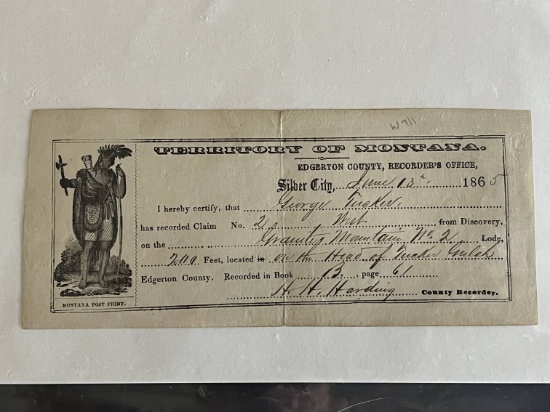 W711
TERRITORY OF MONTANA.
EDGERTON COUNTY, RECORDER'S OFFICE,
Silver City, June 13th 1865
I hereby certify, that George Tucker
has recorded Claim No. 2 West from Discovery,
on the Granite Mountain No 2 Lode,
200 Feet, located in on the Head of Tucker Gulch
Edgerton County. Recorded in Book B. page 61
H. H. Harding County Recorder.
MONTANA POST PRINT.